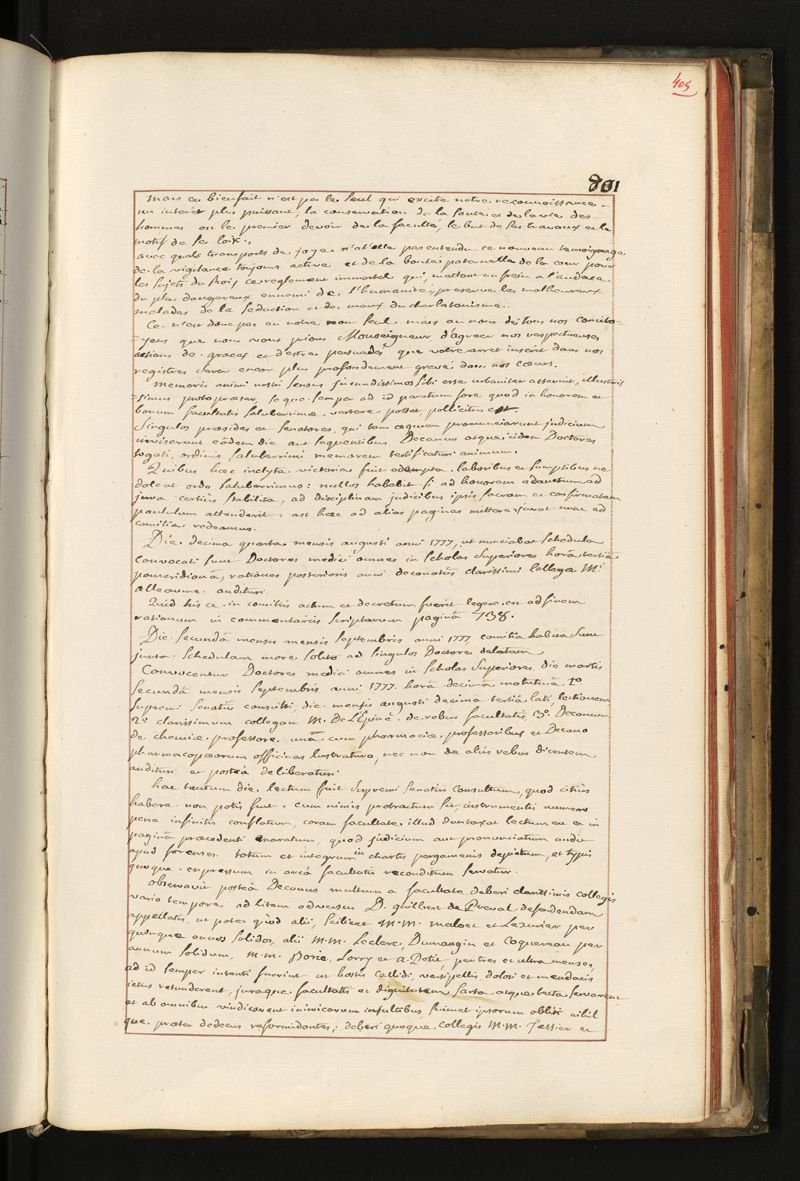 405
801
Mais ce bienfait n'est pas le seul qui excite notre reconnoissance.
un interet plus puissant, la conservation de la santé et de la vie des
hommes est le premier devoir de la faculté, le but de ses travaux et le
motif de se loix.
avec quels transports de joye n'at'elle pas entendu ce nouveau temoignage
de la vigilance toujours active et de la bonté paternelle de la cour pour
les sujets du Roi, ce reglement immortel qui, mettant un frein a l'audace
du plus dangereux ennemi de l'humanité, preserve les malheureux
malades de la seduction et des maux du charlatanisme.
Ce n'est donc pas en notre nom seul mais au nom de tous nos concito-
-yens que nous vous prions Monseigneur d'agréer nos respectueuses
actions de graces et d'estre persuadé que votre arret inscrit dans nos
registres sera encor plus profondement gravé dans nos cœurs.
Memoris animi nostri sensus jucundissimos sibi esse urbaniter asseruit, illustris
-simus protopraeses, seque semper ad id paratum fore quod in honorem et
bonum facultatis saluberrimae vertere posset, pollicitus est.
Singulos praesides et senatores, qui tam aequum pronunciarunt judicium
inviserunt eôdem die aut sequentibus Decanus atque iidem Doctores
togati, ordinis saluberrimi memorem testificaturi animum.
Quibus haec inclyta victoria fuit adempta laboribus et sumptibus ne
doleat ordo saluberrimus: nullos habebit si ad honorem adauctum ad
jura certius stabilita, ad disciplinam judicibus ipsis sacram et confirmatam
paululum attenderit. ast haec ad alias paginas mittere juvat nunc ad
comitia redeamus.
Die decima quarta mensis augusti anni 1777, ut nunciabat schedula
convocati sunt Doctores medici omnes in scholas superiores horâ tertiâ
pomeridianâ, rationes posterioris anni decanatûs clarissimi collegae Mi
alleaume audituri.
Quid his ce in comitiis actum et decretum fuerit legere est ad finem
rationum in commentariis scriptarum paginâ 798.
Die secundâ mensis septembris anni 1777 comitia habita sunt
juxta schedulam more solito ad singulos Doctores delatam
Convocentur Doctores medici omnes in scholas superiores, die martis
secundâ mensis septembris anni 1777. horâ decimâ matutinâ 1o
supremi senatûs consulti, die mensis augusti decima tertiâ lati, lectionem
2o clarissimum collegam M. De L'Epine de rebus facultatis, 3o Decanum
de chemiae professore, unâ cum pharmaciae professoribus et Decano
pharmacopaeorum officinas lustraturo, nec non de aliis rebus dicentem
audituri et posteà deliberaturi.
hac tantum die lectum fuit supremi senatus consultum, quod citius
habere non potis fuit. cum nimis protractum sit, instrumentis numero
pene infinitis conflatum, coram facultate illud duntaxat lectum est et in
paginâ praecedenti exaratum, quod judicium aut pronunciatum audit
apud forenses. totum et integrum in chartis pergamenis depictum, et typis
quoque expressum in arcâ facultatis reconditum servatur.
observavit posteà Decanus multum a facultate deberi clarissimis collegis
vario tempore ad litem adversus D. guilbert de Preval defendendam
appellatis, ut potes quòd alii, scilicet M.M. maloet et Lezurier per
quinque annos solidos, alii M.M. Leclerc, Dumangin et Coquereau per
annum solidum, M.M. Borie, Lorry et A. Petit per tres et ultra menses,
ad id semper intenti fuerint ut hostis callidi, versipellis dolosi et mendacis
ictus retunderent, juraque facultatis et dignitatem sarta atque tecta servarent,
et ab omnibus vindicarent inimicorum insultibus, suimet ipsorum obliti nihil
que praeter dedecus reformidantes; deberi quoque collegis M.M. Tessier et